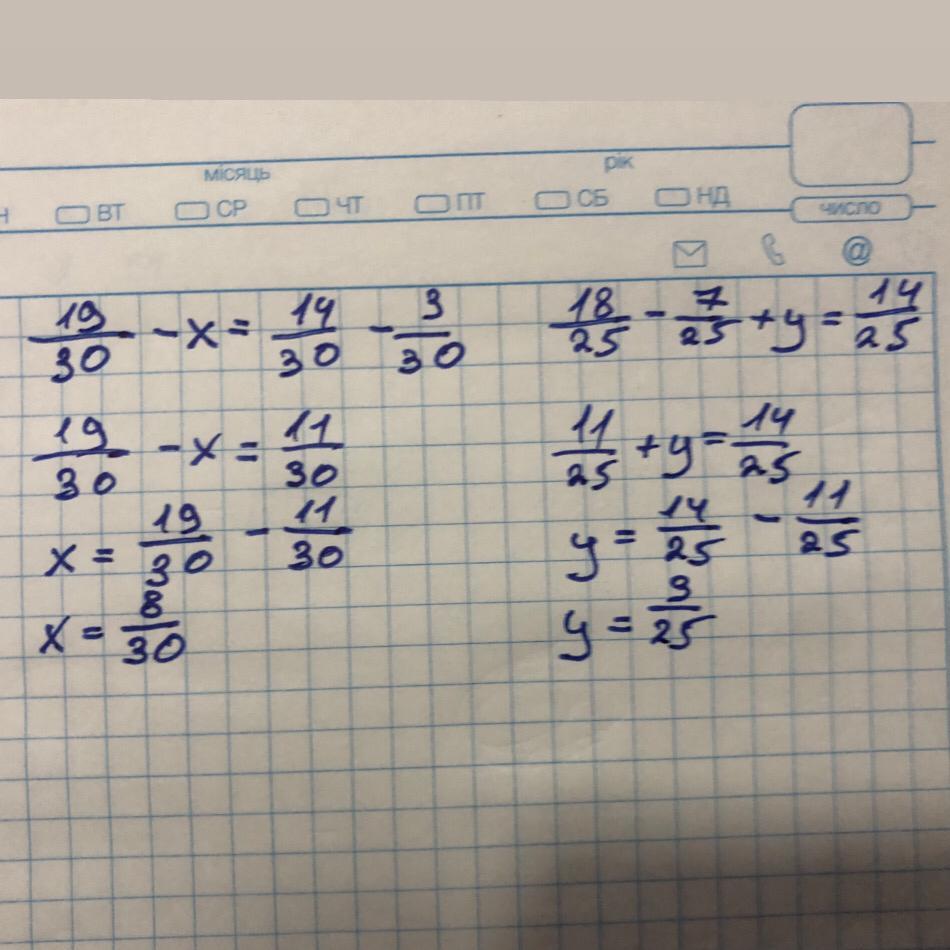 місяць рік
Н ВТ СР ЧТ ПТ СБ НД число
@
19/30 - x = 14/30 - 3/30
19/30 - x = 11/30
x = 19/30 - 11/30
x = 8/30
18/25 - 7/25 + y = 14/25
11/25 + y = 14/25
y = 14/25 - 11/25
y = 3/25